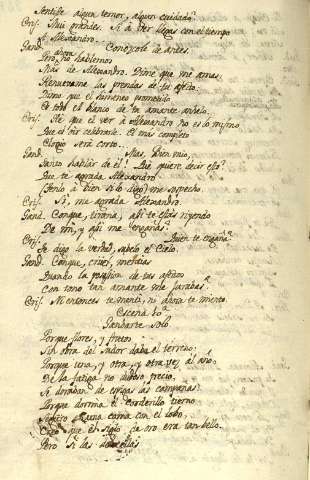 Sentiste algun temor, algun cuidado?
Cris. Mui grandes. Si à ver llegas con el tiempo
à Alessandro.
Gand. Conózcole de antes.
Pero ahora no hablemos
Mas de Alessandro. Dime que me amas.
Renuevame las prendas de tu afecto.
Dime que el himeneo prometido
Es todo el blanco de tu amante anhelo.
Cris. Sé que el ver à Alessandro no es lo mismo
Que el oir celebrarle. El mas completo
Elogio será corto.
Gand. Mas, Bien mio,
Tanto hablar de él! Qué quiere decir esto?
Que te agrada Alessandro
(Tenlo à bien si lo digo) me sospecho.
Cris. Si, me agrada Alessandro.
Gand. Conque, tirana, asi te estás riyendo
De mi, y asi me engañas?
Cris. Quien te engaña?
Te digo la verdad, sabelo el Cielo.
Gand. Conque, cruel, mentias
Quando la posesion de tus afectos
Con tono tan amante me jurabas?
Cris. Ni entonces te mentí, ni ahora te miento.
Escena
Gandarte solo
Porque flores, y frutos
Sin obra del sudor daba el terreno:
Porque una, y otra, y otra vez al año,
De la fatiga no debido precio,
Se doraban de espigas las campañas:
Porque dormia el corderillo tierno
En una cama con el lobo,
Creo que el siglo de oro era tan bello.
Pero si las doncellas